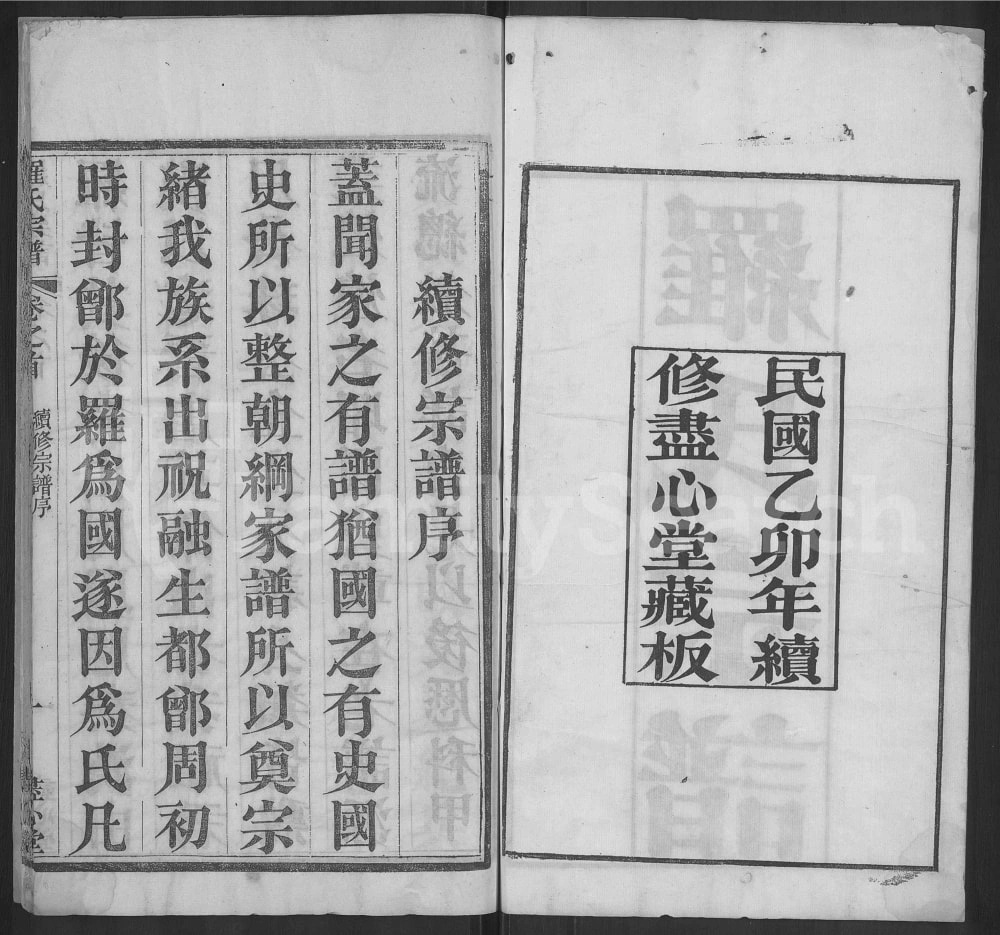 民國乙卯年續
修盡心堂藏板
續修宗譜序
蓋聞家之有譜猶國之有史國
史所以整朝綱家譜所以奠宗
緒我族系出祝融生都鄫周初
時封鄫於羅爲國遂因爲氏凡
羅氏宗譜
卷之首
續修宗譜序
一
盡心堂